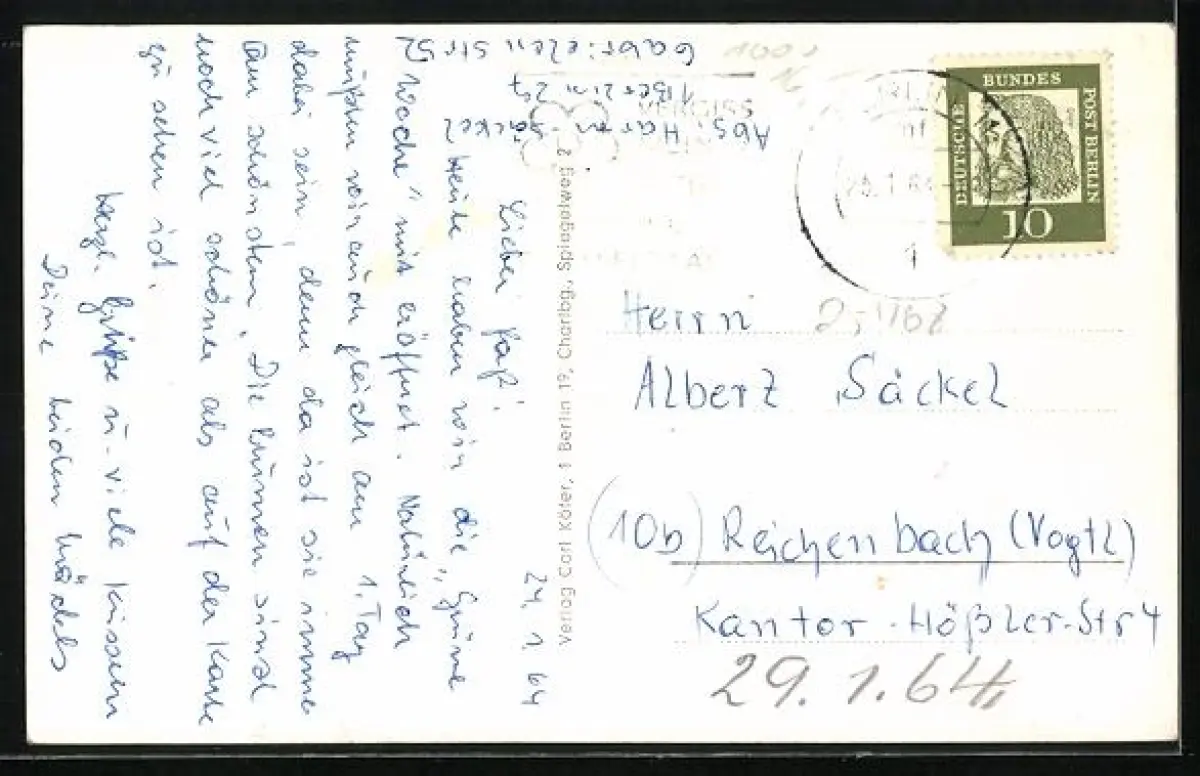 24. 1. 64
Lieber Paps!
Heute haben wir die „Grüne
Woche" mit eröffnet. Natürlich
müssen wir auch gleich am 1. Tag
dabei sein, denn da ist sie immer
am schönsten. Die Blumen sind
noch viel schöner als auf der Karte
zu sehen ist.
herzl. Grüße u. viele Küssen
Deine beiden Mädels
Abs: Harn-Säckel
1 Berlin 27
Gabrielen Str 52
Verlag Carl Köfer, 1 Berlin 19, Charlbg., Spiegelweg 2
VERGISS
DEUTSCHE BUNDES POST BERLIN
10
1
Herrn
Albert Säckel
(10b) Reichenbach (Vogtl)
Kantor-Hößler-Str 4
29.1.64